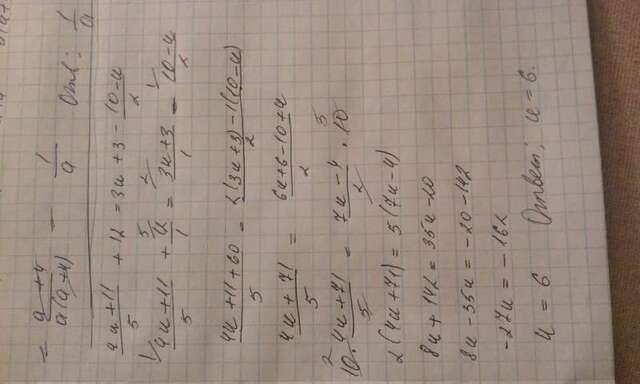 = a+4/a(a+4) = 1/a Отв: 1/a
4u+11/5 + 12 = 3u+3 - 10-u/2
1/ 4u+11/5 + 5/ 12/1 = 2/ 3u+3/1 - 1/ 10-u/2
4u+11+60/5 = 2(3u+3)-1(10-u)/2
4u+71/5 = 6u+6-10+u/2
2 10 · 4u+71/5 = 7u-4/2 · 10 5
2(4u+71) = 5(7u-4)
8u+142 = 35u-20
8u-35u = -20-142
-27u = -162
u = 6 Ответ: u=6.